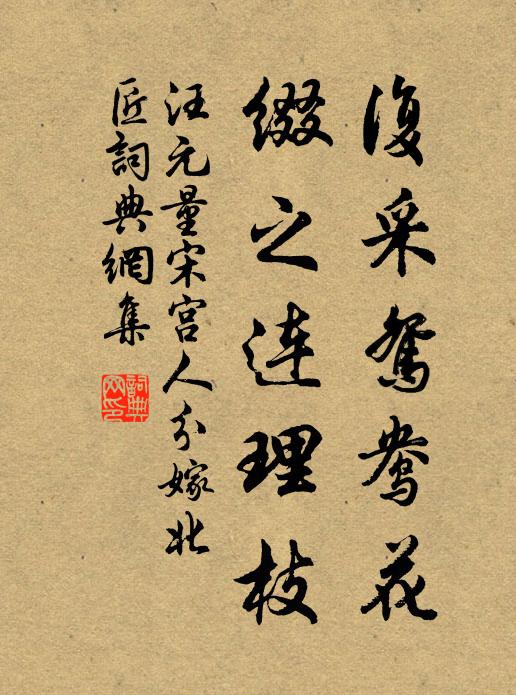 復采鴛鴦花
綴之連理枝
汪元量宋宫人分嫁北
匠詞典網集
詞典网印